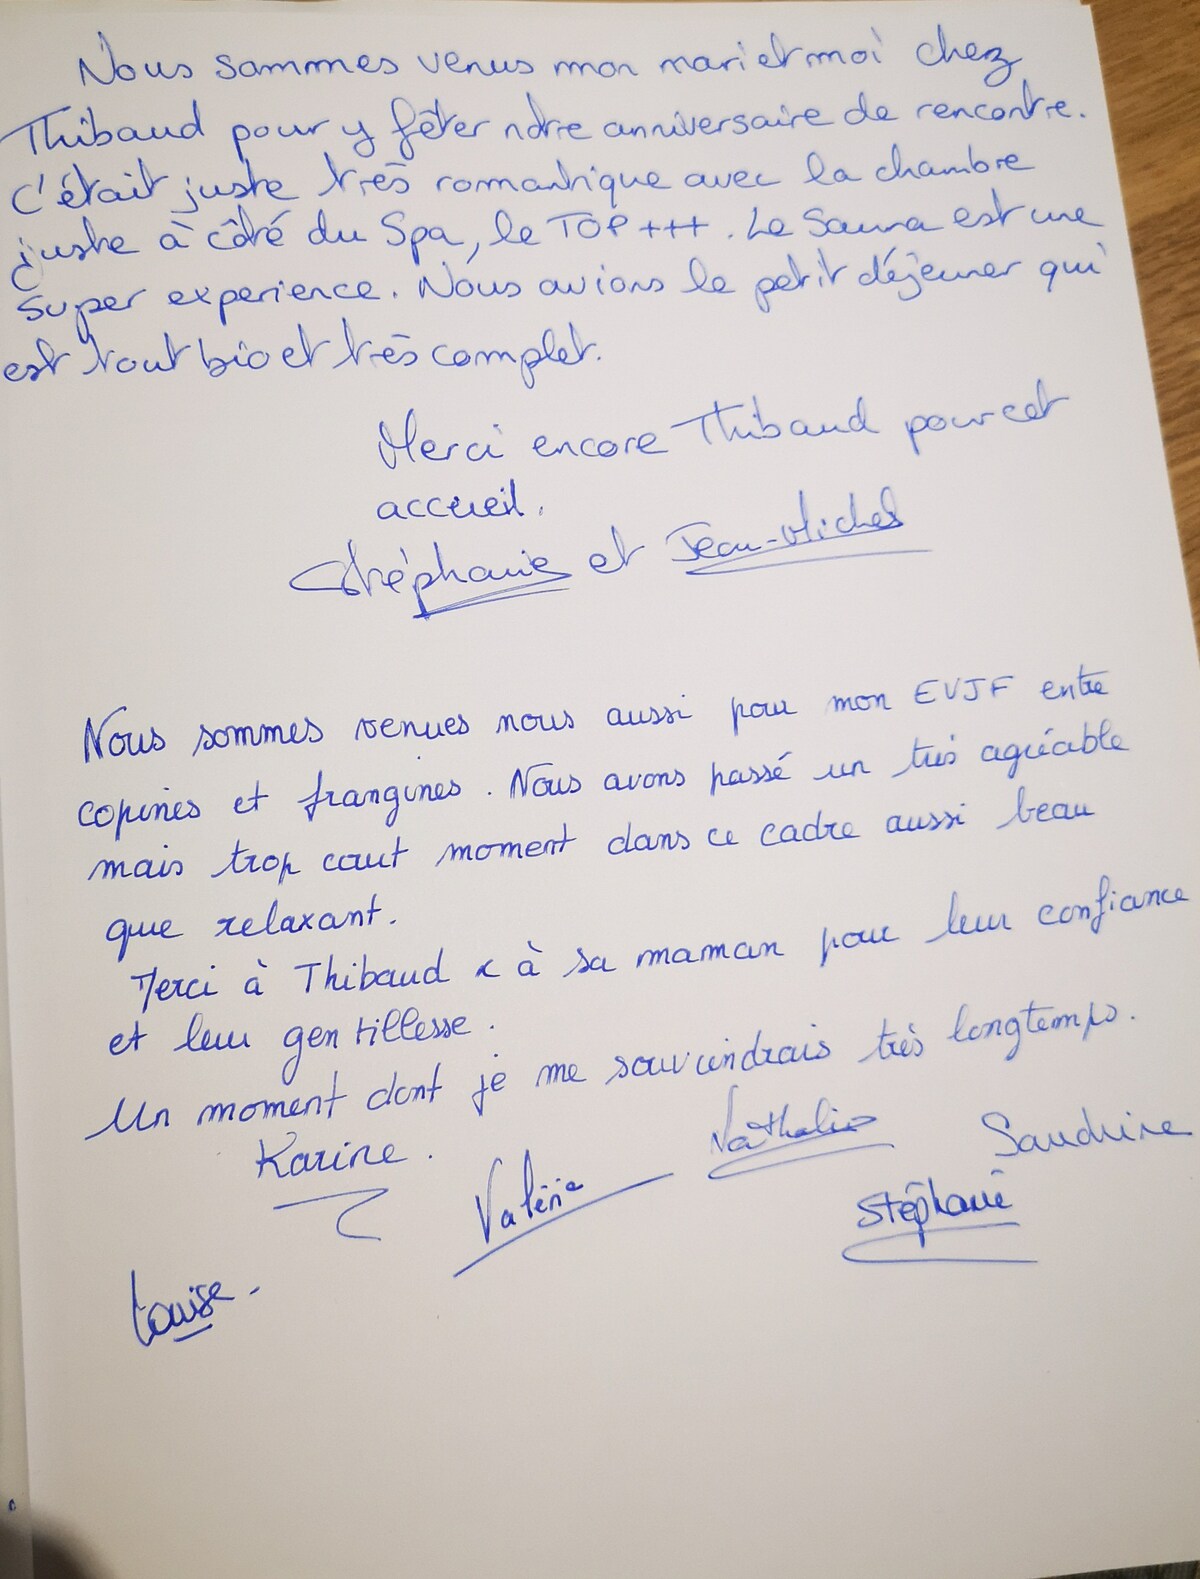 Nous sommes venus mon mari et moi chez
Thibaud pour y fêter notre anniversaire de rencontre.
C'était juste très romantique avec la chambre
juste à côté du Spa, le TOP +++. Le Sauna est une
super experience. Nous avions le petit déjeuner qui
est tout bio et très complet.
Merci encore Thibaud pour cet
accueil.
Stéphanie et Jean-Michel
Nous sommes venues nous aussi pour mon EVJF entre
copines et frangines. Nous avons passé un très agréable
mais trop court moment dans ce cadre aussi beau
que relaxant.
Merci à Thibaud & à sa maman pour leur confiance
et leur gentillesse.
Un moment dont je me souviendrais très longtemps.
Karine.
Valérie
Nathalie
Sandrine
Stéphanie
Louise.